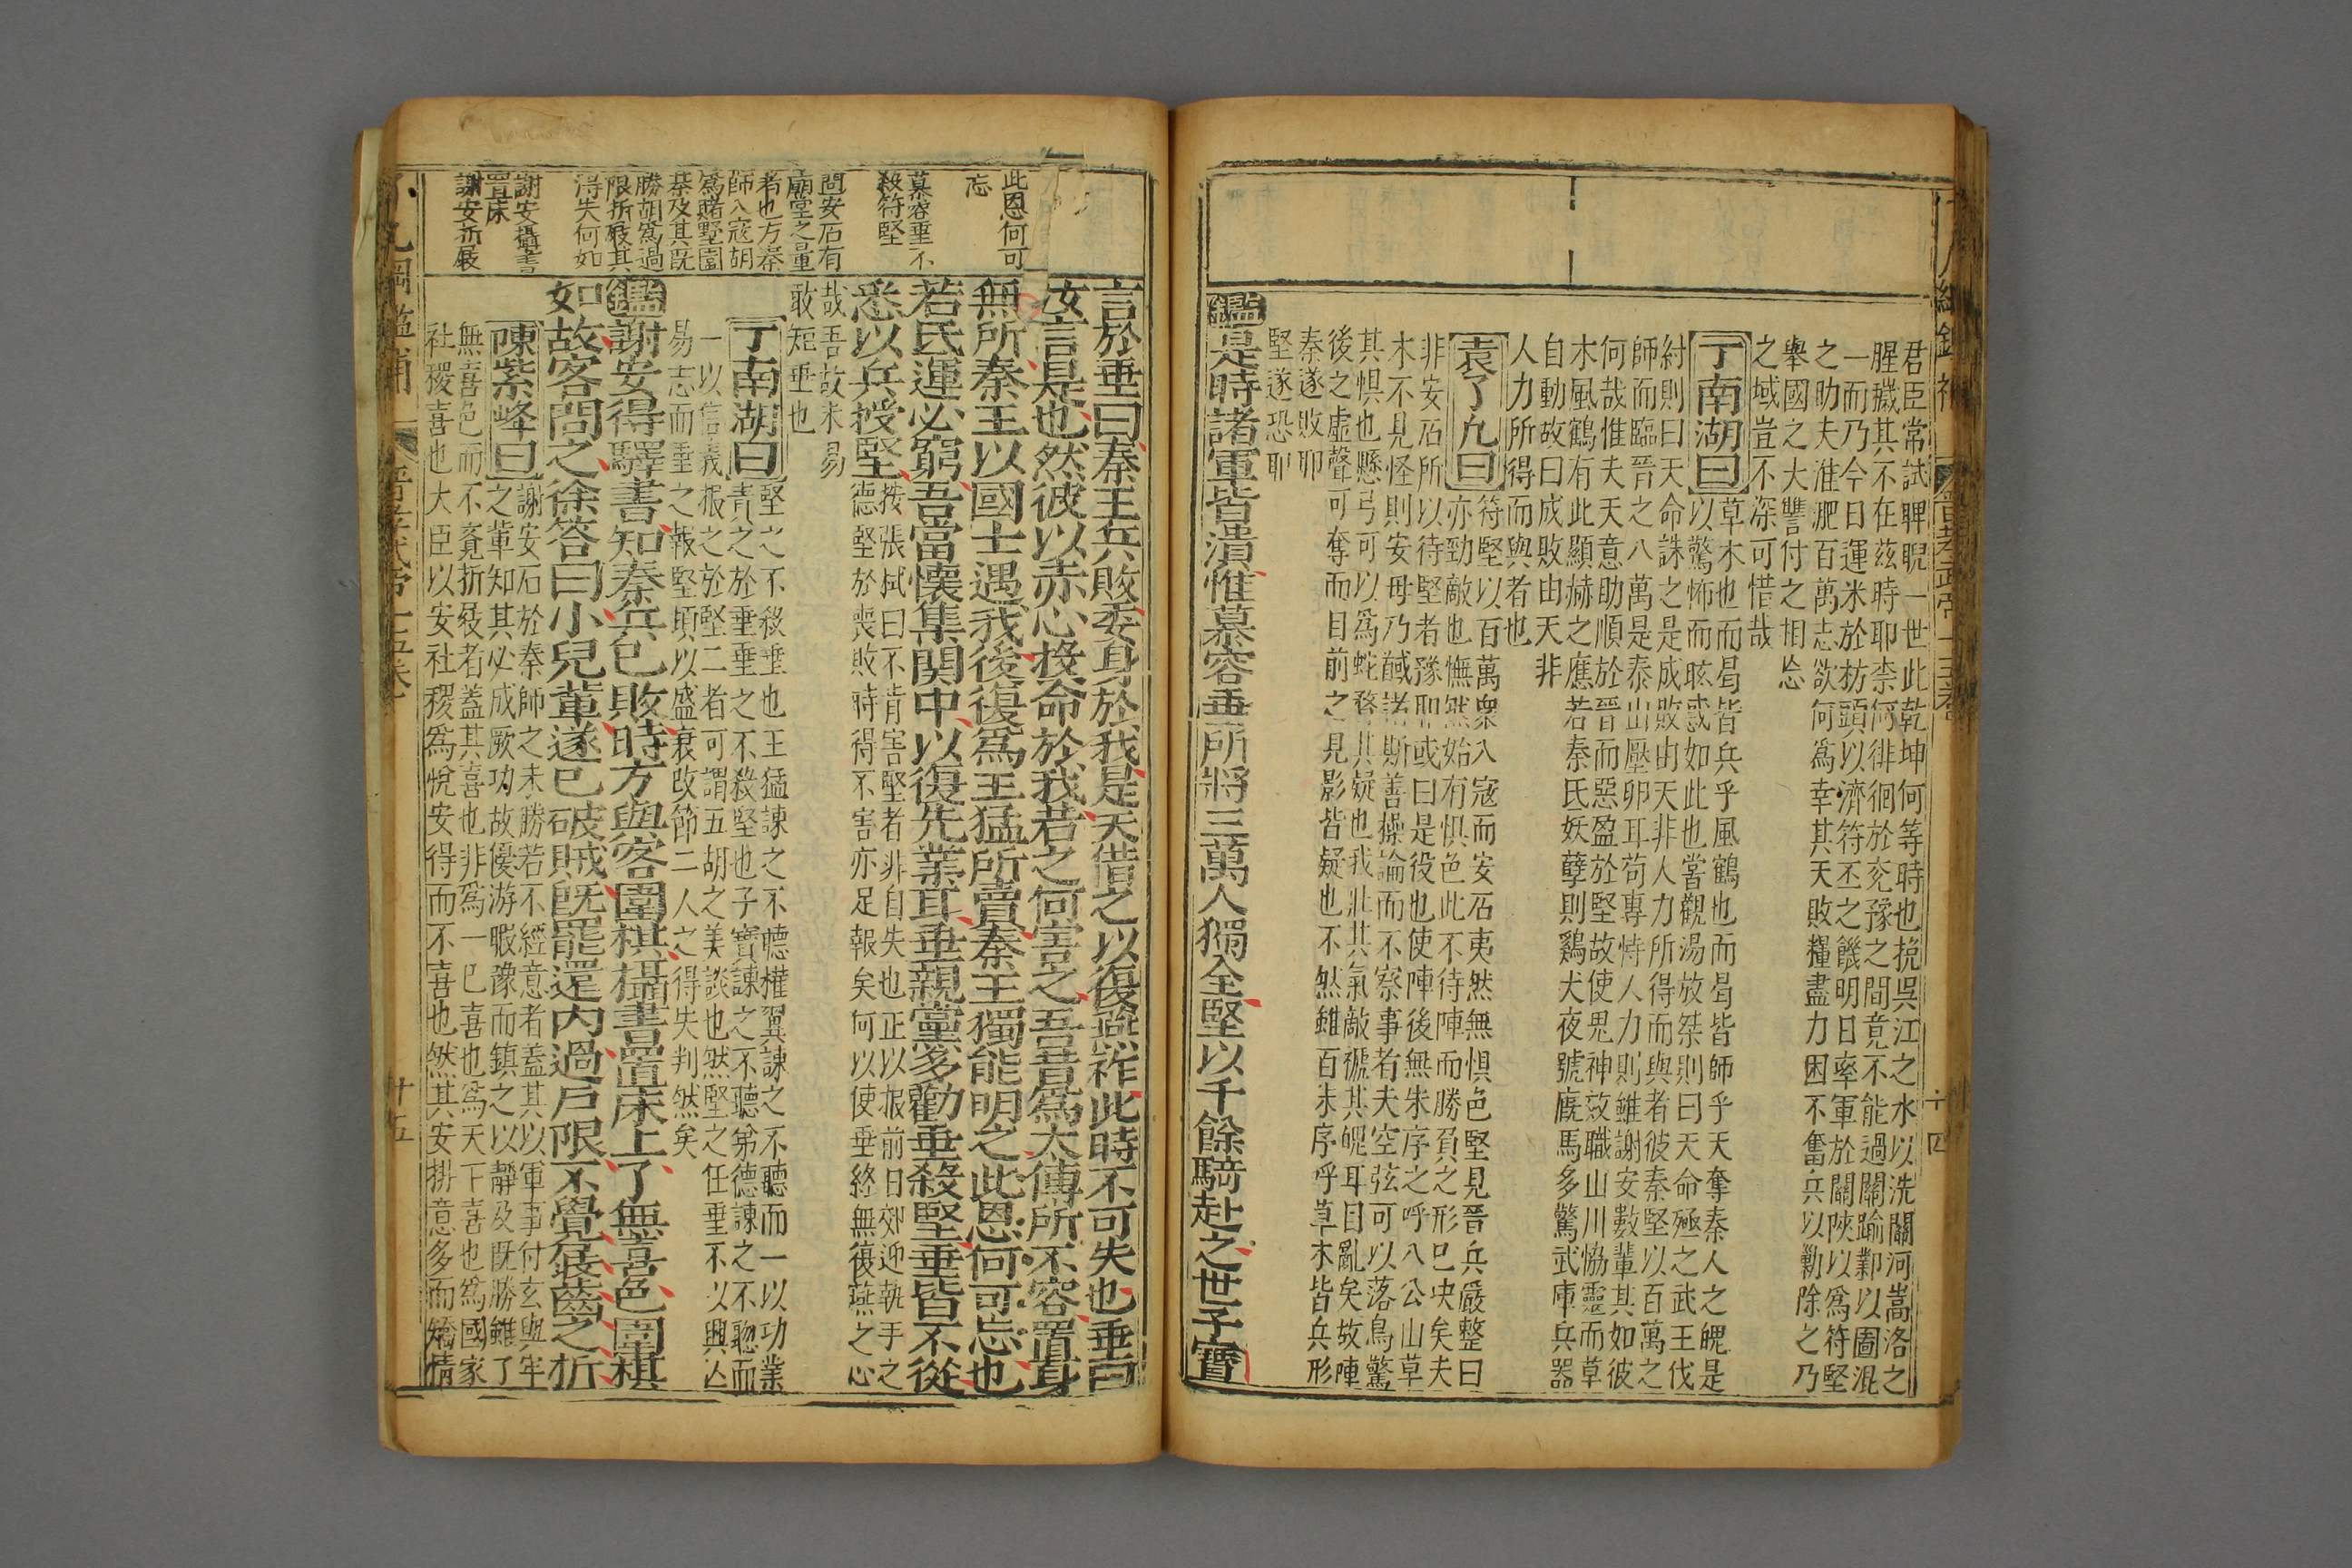 君臣常試睥睨一世此乾坤何等時也挽吳江之水以洗關河嵩洛之
腥穢其不在茲時耶柰何徘徊於兖豫之間竟不能過關踰鄴以圖混
一而乃今日運米於枋頭以濟符丕之饑明日率軍於關陝以爲符堅
之助夫淮淝百萬志欲何爲幸其天敗糧盡力困不奮兵以勦除之乃
舉國之大讐付之相忘
之域豈不深可惜哉
丁南湖曰
草木也而曷皆兵乎風鶴也而曷皆師乎天奪秦人之魄是
以驚怖而眩惑如此也當觀湯放桀則曰天命殛之武王伐
紂則曰天命誅之是成敗由天非人力所得而與者彼秦堅以百萬之
師而臨晉之八萬是泰山壓卵耳苟專恃人力則雖謝安數輩其如彼
何哉惟夫天意助順於晉而惡盈於堅故使鬼神效職山川恊靈而草
木風鶴有此顯赫之應若秦氏妖孽則鷄犬夜號廐馬多驚武庫兵器
自動故曰成敗由天非
人力所得而與者也
袁了凡曰
符堅以百萬衆入寇而安石夷然無惧色堅見晉兵嚴整曰
亦勁敵也憮然始有惧色此不待陣而勝負之形已决矣夫
非安石所以待堅者豫耶或曰是役也使陣後無朱序之呼八公山草
木不見怪則安毋乃馘諸斯善操論而不察事者夫空弦可以落鳥驚
其惧也懸弓可以爲蛇𥈠其疑也我壯其氣敵禠其魄耳目亂矣故陣
後之虛聲可奪而目前之見影皆疑也不然雖百朱序呼草木皆兵形
秦遂敗耶
堅遂恐耶
鑑是時諸軍皆潰惟慕容垂所將三萬人獨全堅以千餘騎赴之世子寶
晋孝武帝十五卷
六四
此恩何可
忘
慕容垂不
殺符堅
問安石有
廟堂之量
者也方秦
師入寇胡
爲賭墅圍
棊及其既
勝胡爲過
限折屐其
得失何如
謝安攝書
置床
謝安折屐
言於垂曰秦王兵敗委身於我是天借之以復燕祚此時不可失也垂曰
汝言是也然彼以赤心投命於我若之何害之吾昔爲太傅所不容置身
無所秦王以國士遇我後復爲王猛所賣秦王獨能明之此恩何可忘也
若氏運必窮吾當懷集関中以復先業耳垂親黨多勸垂殺堅垂皆不從
悉以兵授堅
按張栻曰不肯害堅者非自失也正以报前日郊迎執手之
德堅於喪敗時得不害亦足報矣何以使垂終無復燕之心
哉吾故未易
敢短垂也
丁南湖曰
堅之不殺垂也王猛諫之不聽權翼諫之不聽而一以功業
責之於垂垂之不殺堅也子寶諫之不聽弟德諫之不聰而
一以信義报之於堅二者可謂五胡之美談也然堅之任垂不以興亾
易志而垂之報堅頃以盛衰改節二人之得失判然矣
鑑謝安得驛書知秦兵已敗時方與客圍棋攝書置床上了無喜色圍棋
如故客問之徐答曰小兒輩遂已破賊既罷還内過戶限不覺屐齒之折
陳紫峰曰
謝安石於秦師之未勝若不經意者蓋其以軍事付玄與牢
之輩知其必成厥功故優游暇豫而鎮之以靜及既勝雖了
無喜色而不覔折屐者蓋其喜也非爲一已喜也爲天下喜也爲國家
社稷喜也大臣以安社稷爲悅安得而不喜也然其安排意多而矯情
了凡綱鑑補
晋孝武帝十五卷
廿五